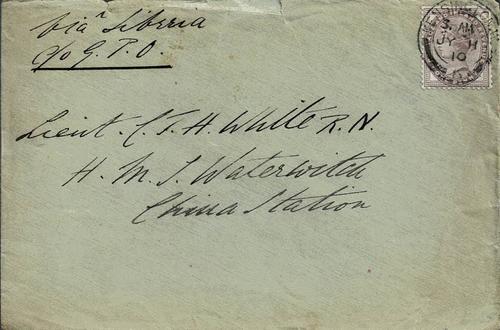 viâ Siberia
c/o G.P.O.
Lieut. C. T. H. White R.N.
H. M. S. Waterwitch
China Station
KENSINGTON
3 AM
JY 11
10